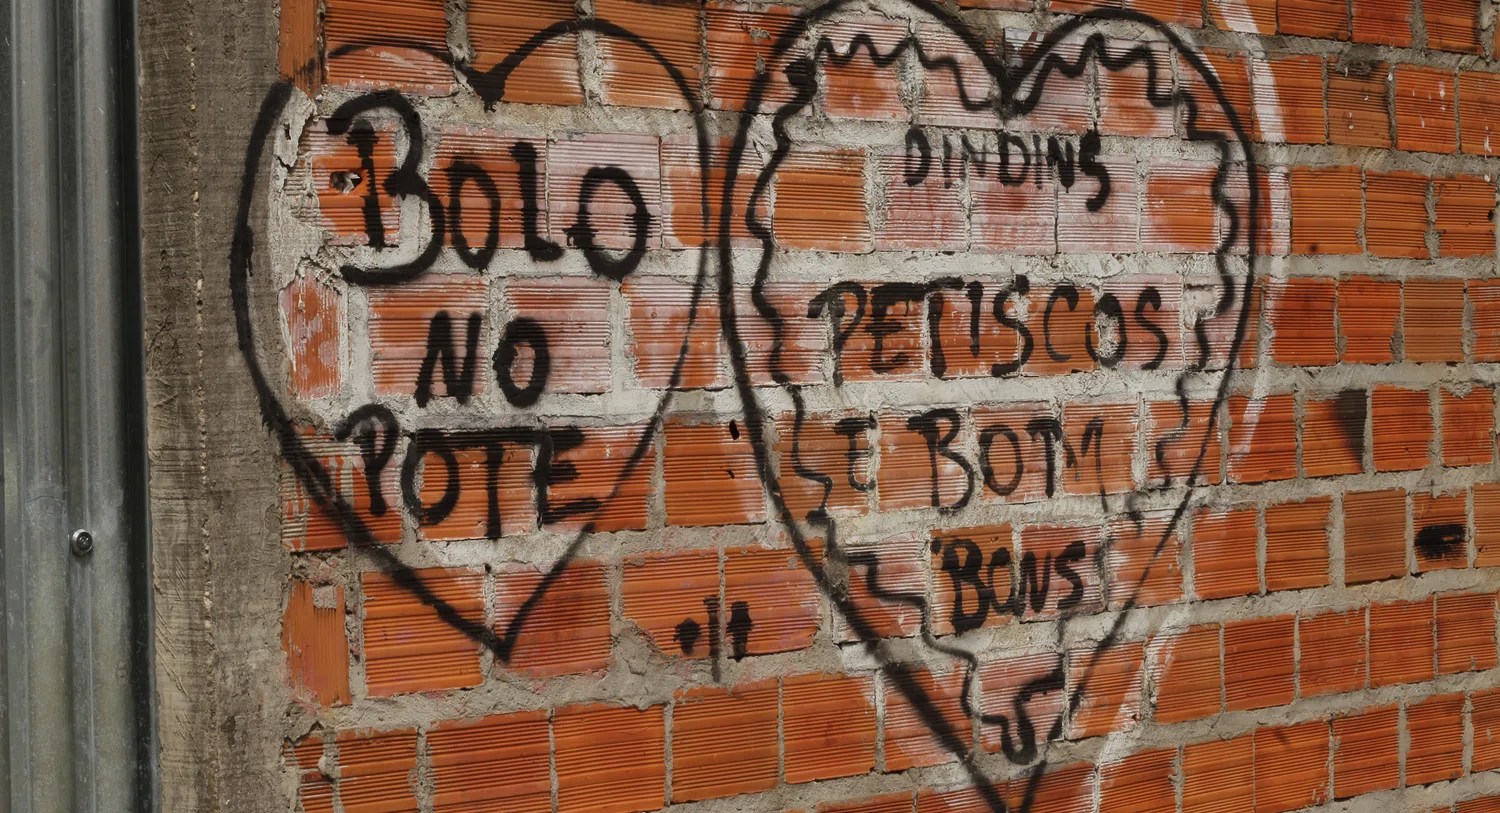 BOLO
NO
POTE
DINDINS
PETISCOS
E BOM
BONS